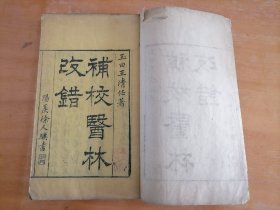 玉田王清任著
補校醫林
改錯